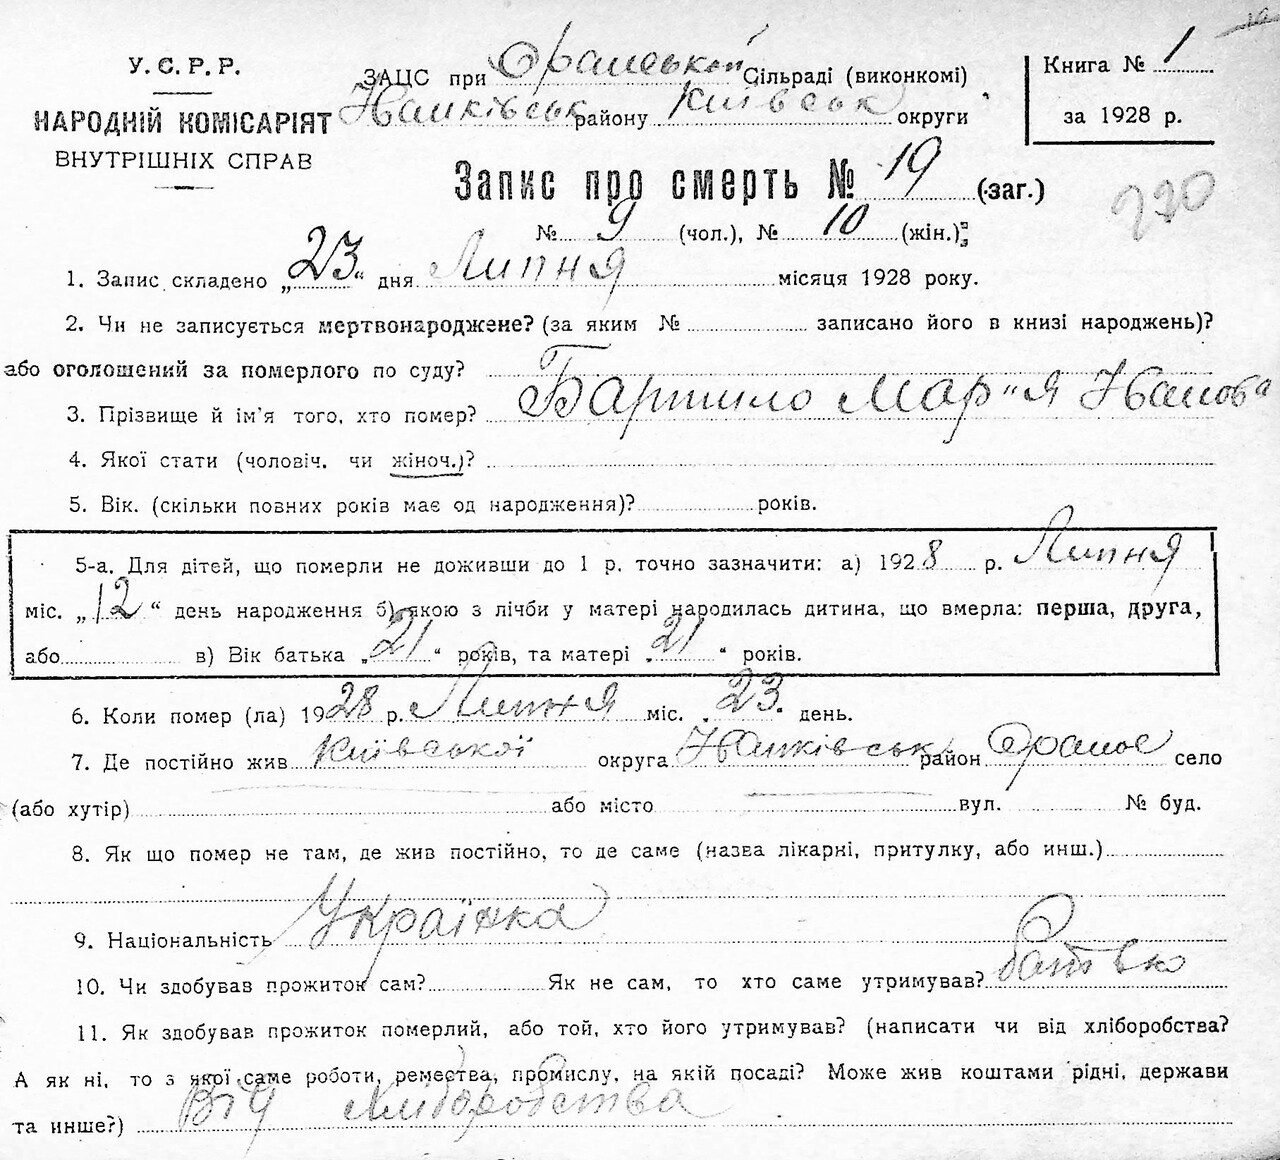 У.С.Р.Р.
НАРОДНІЙ КОМІСАРІЯТ
ВНУТРІШНІХ СПРАВ
ЗАЦС при Оранської Сільраді (виконкомі)
Іванківськ району Київськ округи
Книга № 1
за 1928 р.
Запис про смерть № 19 (заг.)
230
№ 9 (чол.), № 10 (жін.);
1. Запис складено „23“ дня Липня місяця 1928 року.
2. Чи не записується мертвонароджене? (за яким № записано його в книзі народжень)?
або оголошений за померлого по суду?
3. Прізвище й ім'я того, хто помер? Бартило Мар"я Іванова
4. Якої стати (чоловіч. чи жіноч.)?
5. Вік. (скільки повних років має од народження)? років.
5-а. Для дітей, що померли не доживши до 1 р. точно зазначити: а) 1928 р. Липня
міс. „12“ день народження б) якою з лічби у матері народилась дитина, що вмерла: перша, друга,
або в) Вік батька „21“ років, та матері „21“ років.
6. Коли помер (ла) 1928 р. Липня міс. „23“ день.
7. Де постійно жив Київської округа Іванківськ район Оране село
(або хутір) або місто вул. № буд.
8. Як що помер не там, де жив постійно, то де саме (назва лікарні, притулку, або инш.)
9. Національність Українка
10. Чи здобував прожиток сам? Як не сам, то хто саме утримував? батько
11. Як здобував прожиток померлий, або той, хто його утримував? (написати чи від хліборобства?
А як ні, то з якої саме роботи, ремества, промислу, на якій посаді? Може жив коштами рідні, держави
та инше?) Від хліборобства